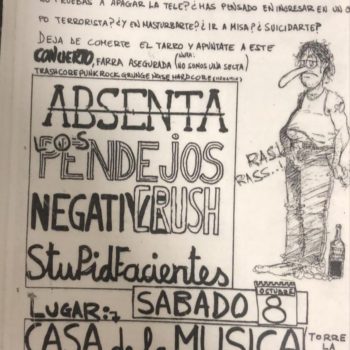 PRUEBAS A APAGAR LA TELE? ¿HAS PENSADO EN INGRESAR EN UN
PO TERRORISTA? ¿Y EN MASTURBARTE? ¿IR A MISA? ¿SUICIDARTE?
DEJA DE COMERTE EL TARRO Y APÚNTATE A ESTE
CONCIERTO, FARRA ASEGURADA (NO SOMOS UNA SECTA)
TRASHCORE PUNK ROCK GRUNGE NOISE HARDCORE
ABSENTA
LOS
PENDEJOS
NEGATIV CRUSH
StuPidFacientes
RAS!
RASS...
SABADO
OCTUBRE
8
LUGAR:
CASA de la MUSICA
TORRE
LA